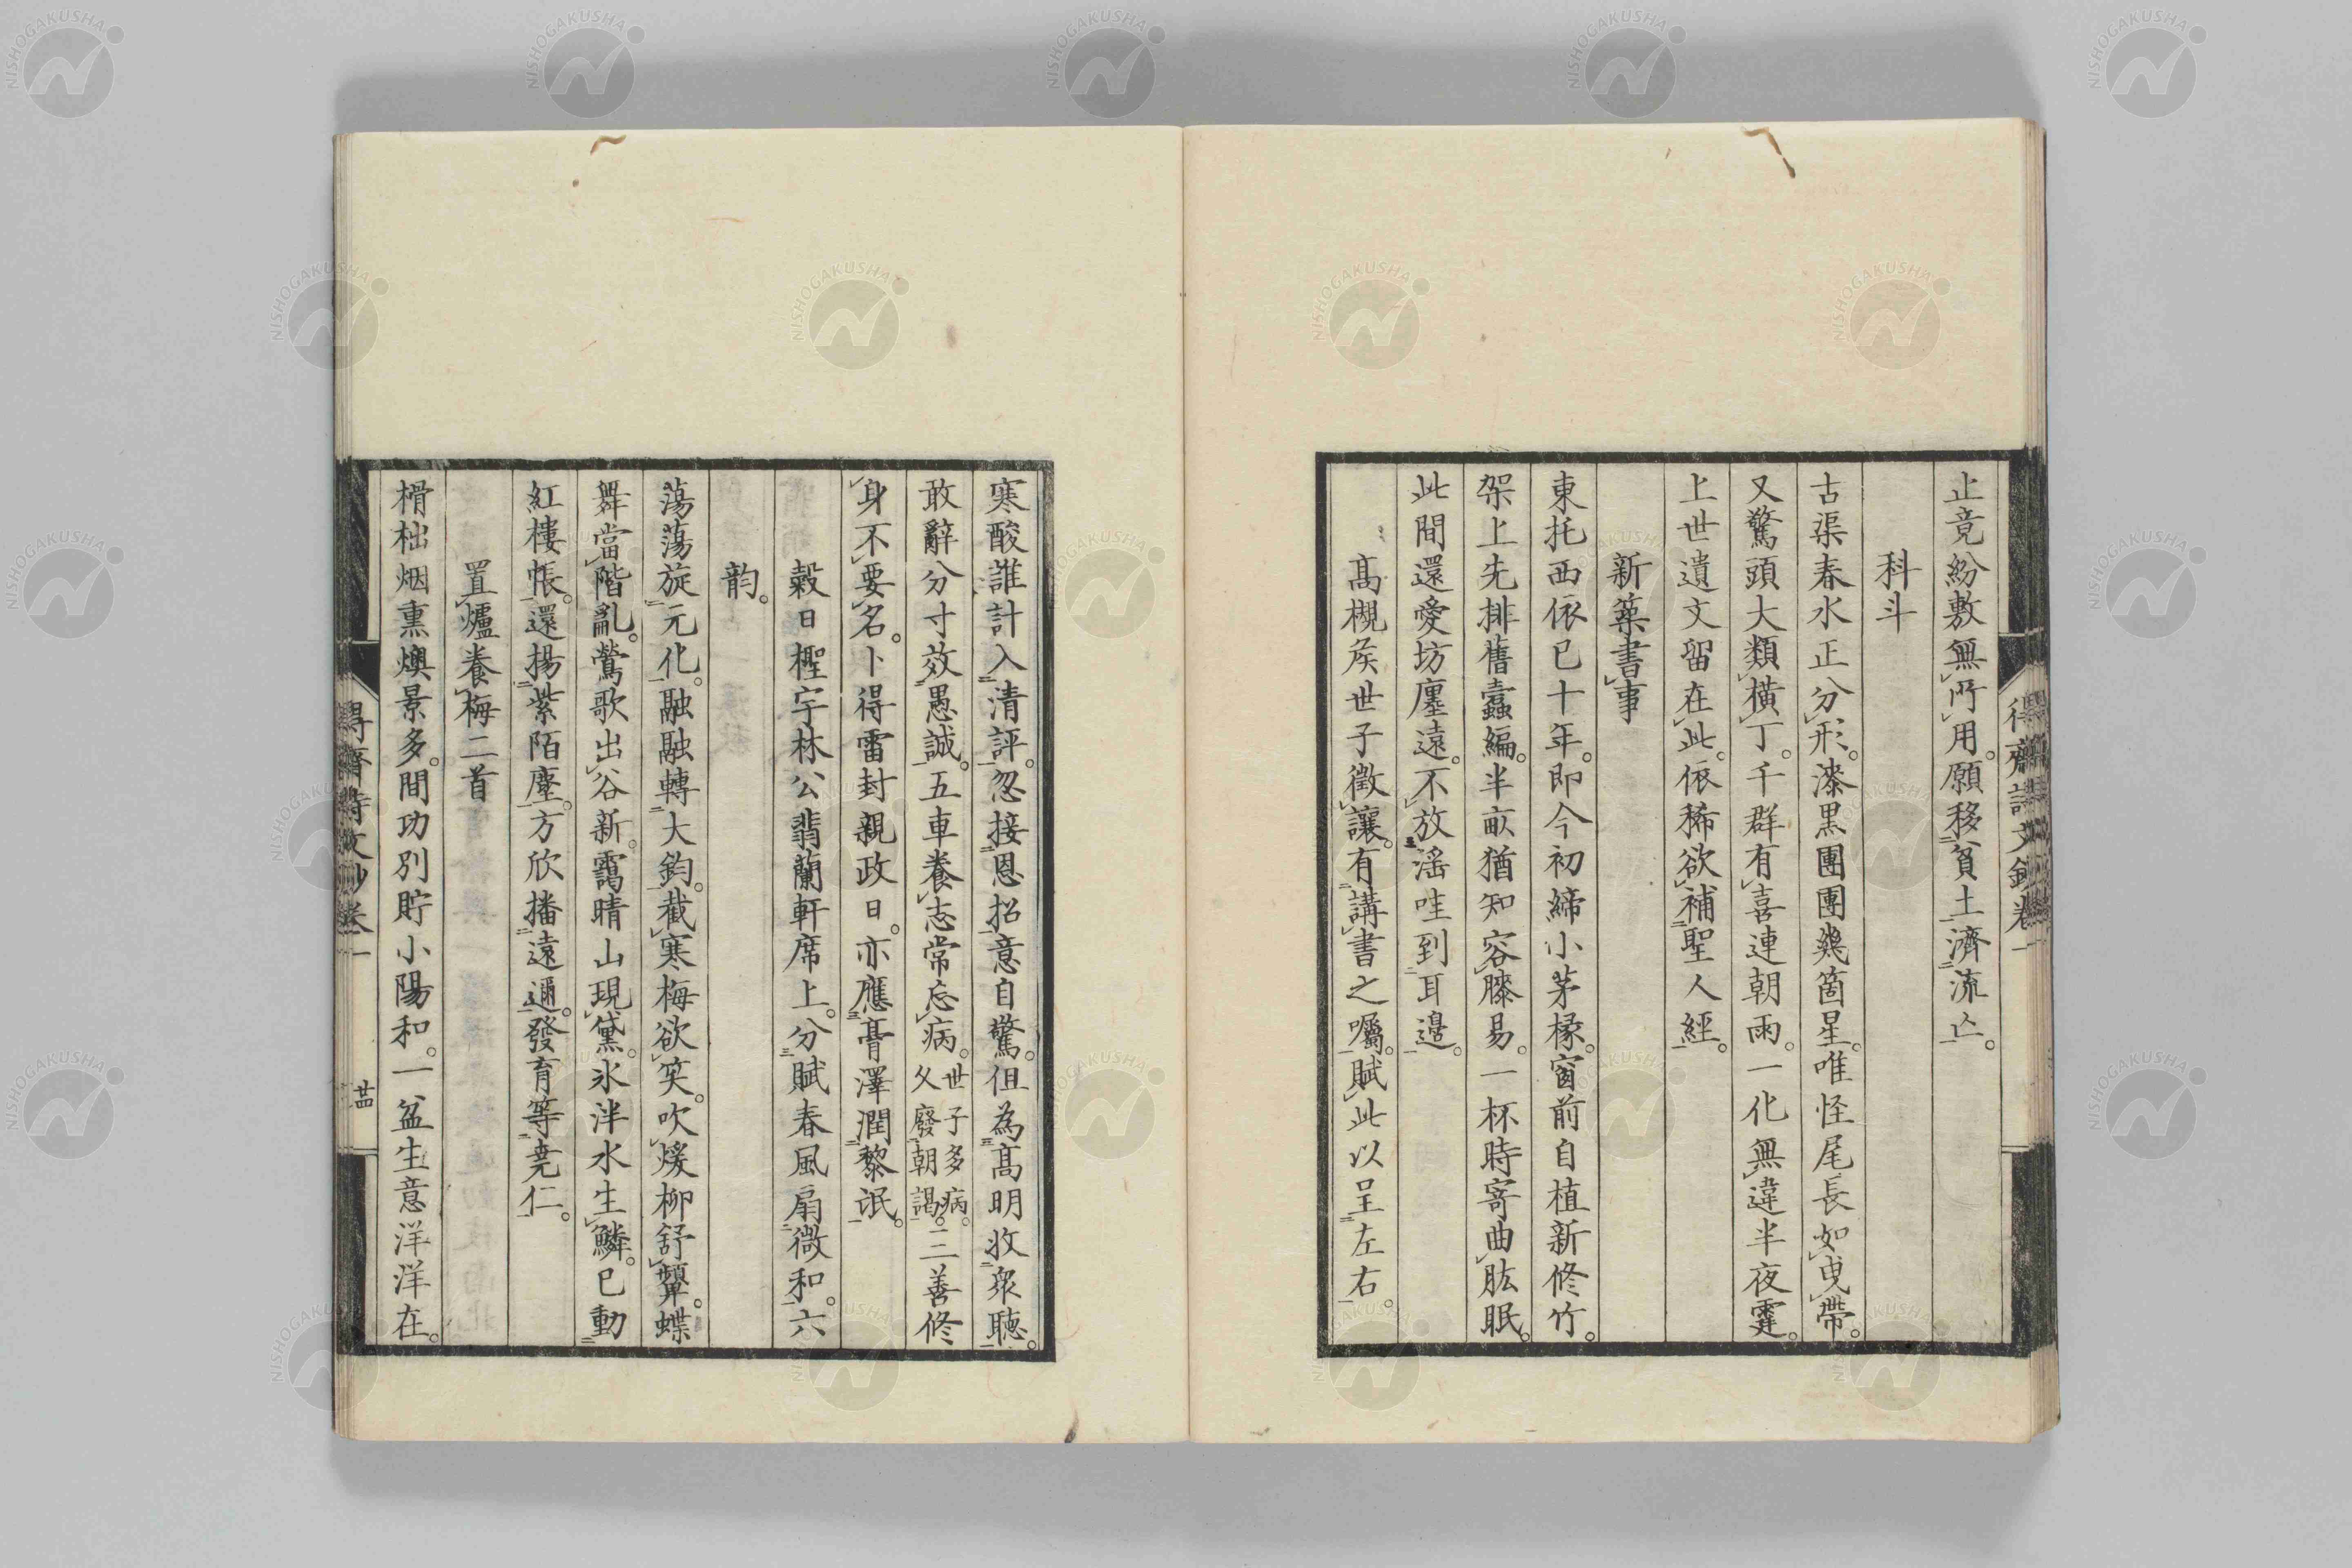 止竟紛敷無所用。願移貧土濟流亡。
科斗
古渠春水正分形。漆黒團團幾箇星。唯怪尾長如曳帶。
又驚頭大類橫丁。千群有喜連朝雨。一化無違半夜霆。
上世遺文留在此。依稀欲補聖人經。
新築書事
東托西依已十年。即今初締小茅椽。窗前自植新修竹。
架上先排舊蠹編。半畝猶知容膝易。一杯時寄曲肱眠。
此間還愛坊廛遠。不放滛哇到耳邊。
髙槻矦世子徵讓。有講書之囑。賦此以呈左右。
得齋詩文鈔卷一
寒酸誰計入清評。忽接恩招意自驚。但為髙明收衆聴。
敢辭分寸效愚誠。五車養志常忘病。世子多病。父廢朝謁。三善修
身不要名。卜得雷封親政日。亦應膏澤潤黎氓。
穀日檉宇林公翡蘭軒席上。分賦春風扇微和。六
韵。
蕩蕩旋元化。融融轉大鈞。截寒梅欲笑。吹煖柳舒顰。蝶
舞當階亂。鶯歌出谷新。靄晴山現黛。氷泮水生鱗。已動
紅樓帳。還揚紫陌塵。方欣播遠邇。發育等尭仁。
置爐養梅二首
榾柮烟熏燠景多。間功別貯小陽和。一盆生意洋洋在。
得齋詩文鈔卷一
廿四
NISHOGAKUSHA